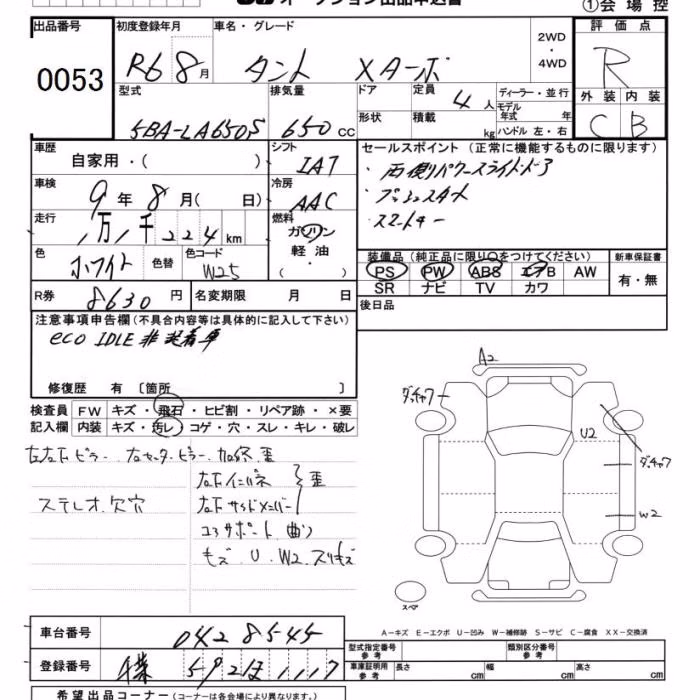 ①会場控
出品番号 初度登録年月 車名・グレード 評価点
0053 R6 8月 タント Xターボ 2WD・4WD R
型式 排気量 ドア 定員 4人 ディーラー・並行 外装 内装
5BA-LA650S 650cc 形状 積載 kg モデル年式 年 ハンドル 左・右 C B
車歴 自家用・( ) シフト IAT セールスポイント (正常に機能するものに限ります)
車検 9年8月( 日) 冷房 AAC ・両側パワースライドドア
・プッシュスタート
スマートキー
走行 1万1千224km 燃料 ガソリン・軽油・( )
色 ホワイト 色替 色コード W25 装備品 (純正品に限り○をつけてください) 新車保証書
PS PW ABS エアB AW 有・無
SR ナビ TV カワ
R券 8630円 名変期限 月 日 後日品
注意事項申告欄 (不具合内容等は具体的に記入して下さい)
eco IDLE 非装着車
修復歴 有 〔箇所 〕
検査員 FW キズ・飛石・ヒビ割・リペア跡・×要
記入欄 内装 キズ・汚レ・コゲ・穴・スレ・キレ・破レ
右センターピラー
ステレオ欠穴 右下サイドメンバー
コアサポート曲り
キズ U W2 スリキズ
A2
U2
W2
スペア
A-キズ E-エクボ U-凹み W-補修跡 S-サビ C-腐食 XX-交換済
車台番号 0428545
型式指定番号 参考 類別区分番号 参考
登録番号
車庫証明用 参考 長さ cm 幅 cm 高さ cm
希望出品コーナー (コーナーは各会場により異なります。)